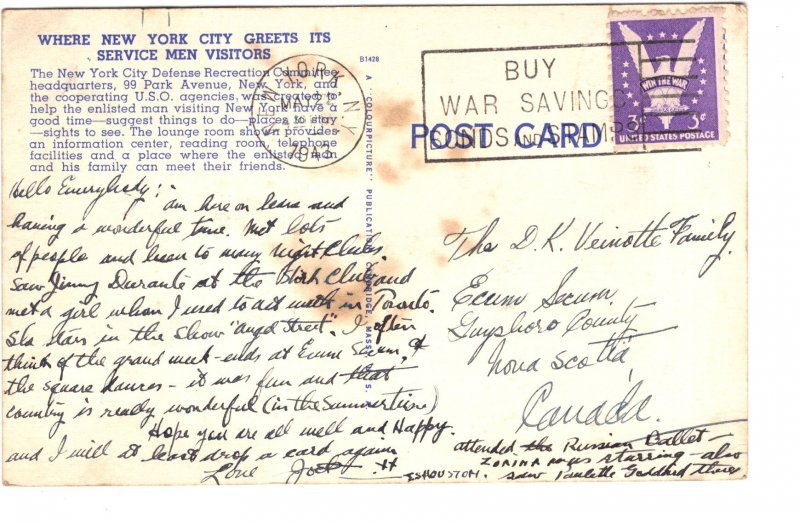 WHERE NEW YORK CITY GREETS ITS
SERVICE MEN VISITORS
The New York City Defense Recreation Committee
headquarters, 99 Park Avenue, New York, and
the cooperating U.S.O. agencies, was created to
help the enlisted man visiting New York have a
good time—suggest things to do—places to stay
—sights to see. The lounge room shown provides
an information center, reading room, telephone
facilities and a place where the enlisted man
and his family can meet their friends.
B1428
A "COLOURPICTURE" PUBLICATION, CAMBRIDGE, MASS., U.S.A.
NEW YORK, N.Y.
MAY 23
1943
BUY
WAR SAVINGS
BONDS AND STAMPS
POST CARD
WIN THE WAR
3¢ 3¢
UNITED STATES POSTAGE
Hello Everybody:-
am here on leave and
having a wonderful time. Met lots
of people and been to many Night Clubs.
Saw Jimmy Durante at the Club and
met a girl whom I used to act with in Toronto.
She stars in the show "Angel Street". I often
think of the grand week-ends at Ecum Secum, &
the square dances - it was fun and that
country is really wonderful (in the Summertime)
Hope you are all well and Happy.
and I will at least drop a card again
Love
attended the Russian Ballet -
ZORINA was starring - also
saw Paulette Goddard there
The D. K. Veinotte Family,
Ecum Secum,
Guysboro County
Nova Scotia,
Canada.